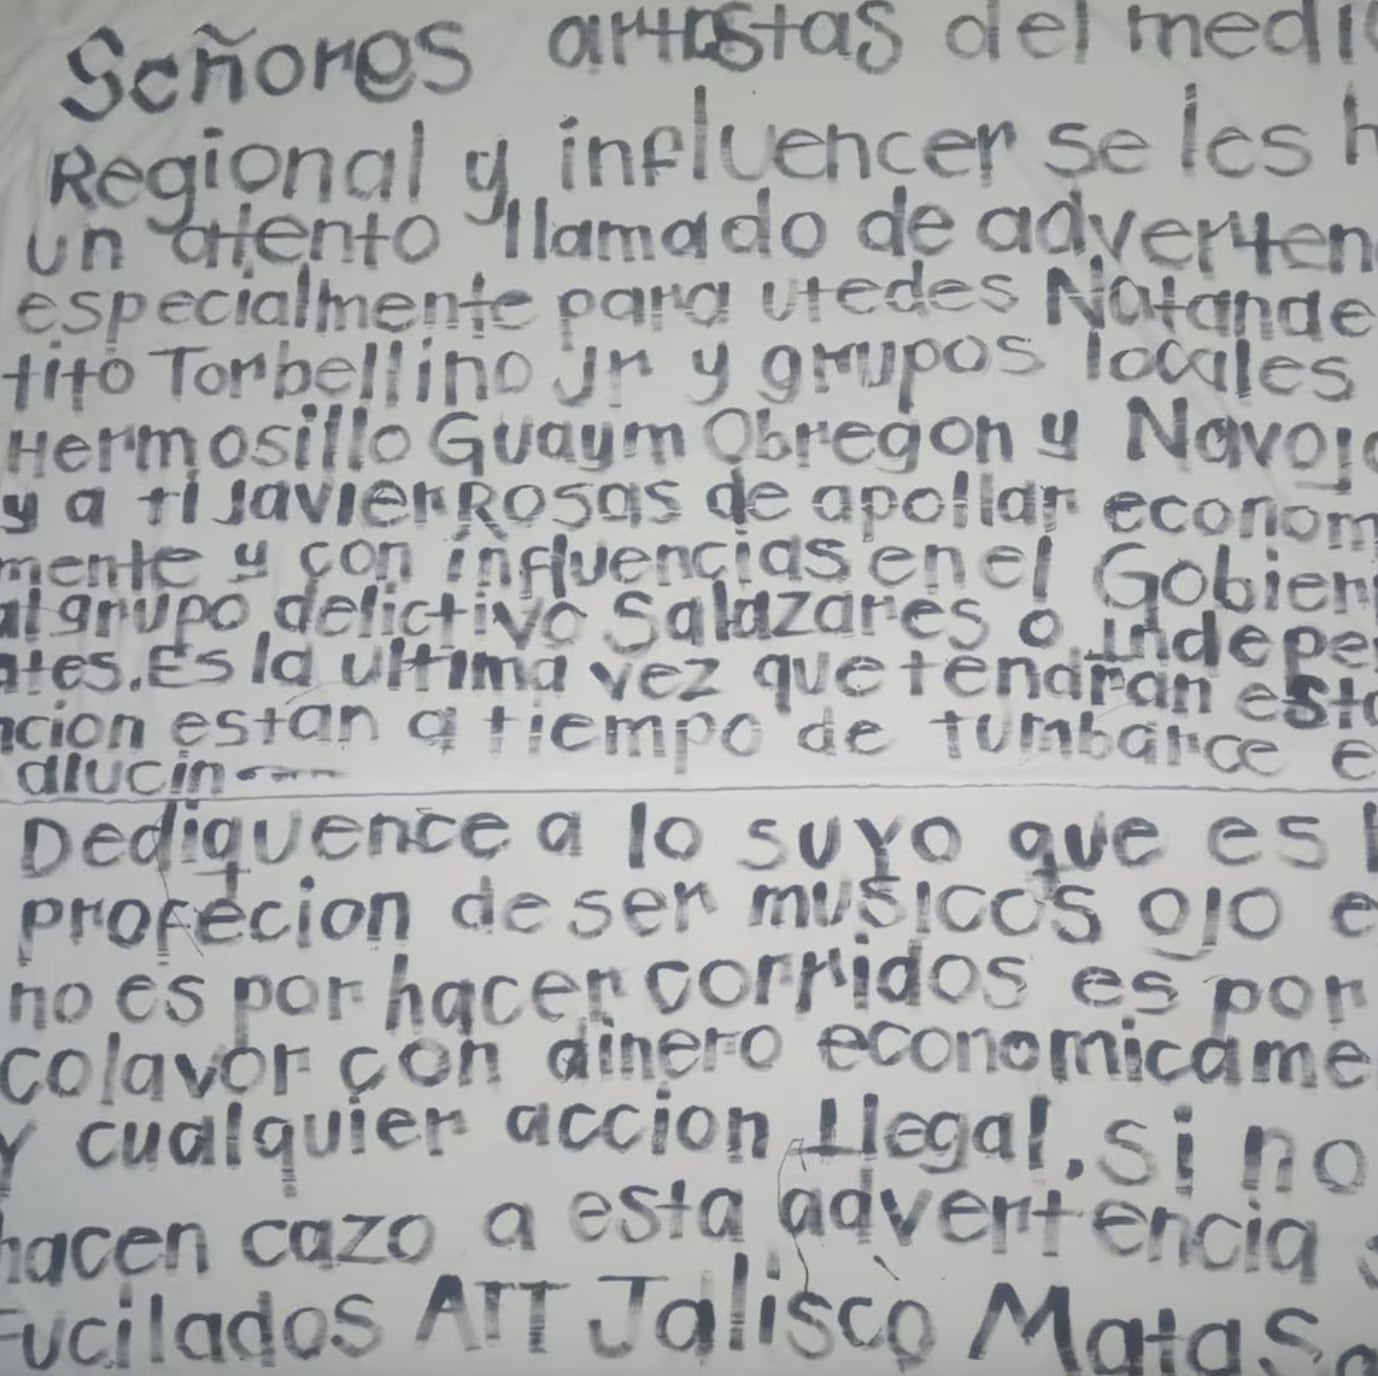 Señores artistas del medi
Regional y influencer se les h
un atento llamado de adverten
especialmente para utedes Natande
tito Torbellino jr y grupos locales
Hermosillo Guaym Obregon y Navojo
y a ti Javier Rosas de apollar econom
mente y con influencias en el Gobier
al grupo delictivo Salazares o Indepe
ates. Es la ultima vez que tendran esta
ncion estan a tiempo de tumbarce e
alucin
Dediquence a lo suyo que es l
profecion de ser musicos ojo e
no es por hacer corridos es por
colavor con dinero economicame
y cualquier accion Ilegal. si no
hacen cazo a esta advertencia s
Fucilados ATT Jalisco Matasa